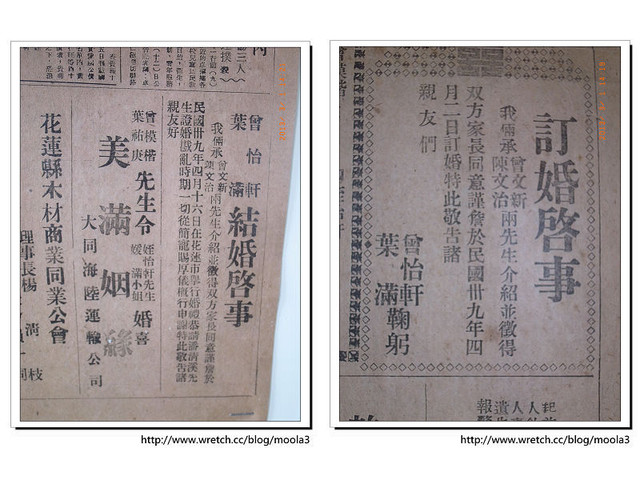 曾怡軒
葉　滿
結婚啓事
我倆承曾文新陳文治兩先生介紹並徵得双方家長同意謹詹於
民國卅九年四月十六日在花蓮市舉行婚禮恭請潘清溪先
生證婚戡亂時期一切從簡寵賜厚儀概行申謝特此敬告諸
親友好
曾模楷
葉祐庚
先生令
姪怡軒先生
媛滿小姐
婚喜
美滿姻緣
大同海陸運輸公司
花蓮縣木材商業同業公會
理事長楊清枝
http://www.wretch.cc/blog/moola3
訂婚啓事
我倆承曾文新陳文治兩先生介紹並徵得
双方家長同意謹詹於民國卅九年四
月二日訂婚特此敬告諸
親友們
曾怡軒
葉　滿
鞠躬
http://www.wretch.cc/blog/moola3